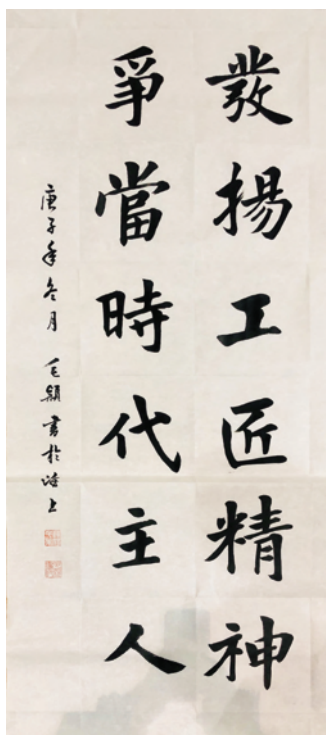 發揚工匠精神
爭當時代主人
庚子年冬月 毛穎書於海上